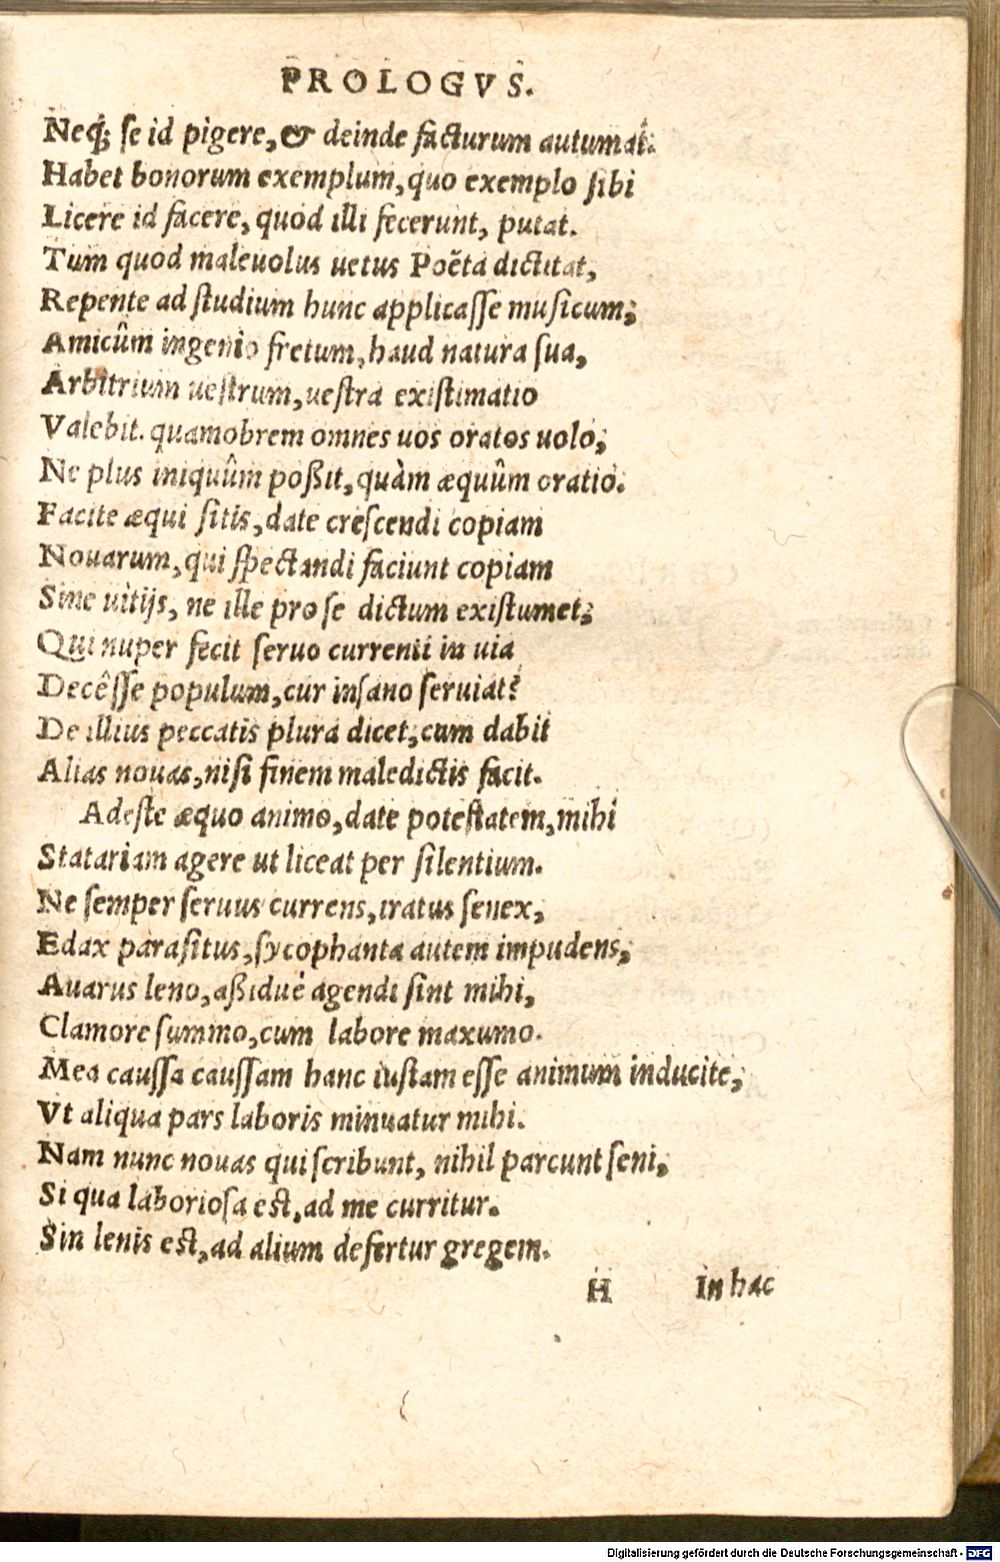 PROLOGVS.
Neq; se id pigere, & deinde facturum autumat.
Habet bonorum exemplum, quo exemplo sibi
Licere id facere, quod illi fecerunt, putat.
Tum quod maleuolus uetus Poëta dictitat,
Repente ad studium hunc applicasse musicum;
Amicûm ingenio fretum, haud natura sua,
Arbitrium uestrum, uestra existimatio
Valebit. quamobrem omnes uos oratos uolo;
Ne plus iniquûm poßit, quàm æquûm oratio.
Facite æqui sitis, date crescendi copiam
Nouarum, qui spectandi faciunt copiam
Sine uitijs, ne ille pro se dictum existumet;
Qui nuper fecit seruo currenti in uia
Decêsse populum, cur insano seruiat?
De illius peccatis plura dicet, cum dabit
Alias nouas, nisi finem maledictis facit.
Adeste æquo animo, date potestatem, mihi
Statariam agere ut liceat per silentium.
Ne semper seruus currens, iratus senex,
Edax parasitus, sycophanta autem impudens,
Auarus leno, aßiduè agendi sint mihi,
Clamore summo, cum labore maxumo.
Mea caussa caussam hanc iustam esse animum inducite,
Vt aliqua pars laboris minuatur mihi.
Nam nunc nouas qui scribunt, nihil parcunt seni,
Si qua laboriosa est, ad me curritur.
Sin lenis est, ad alium defertur gregem.
H In hac
Digitalisierung gefördert durch die Deutsche Forschungsgemeinschaft - DFG